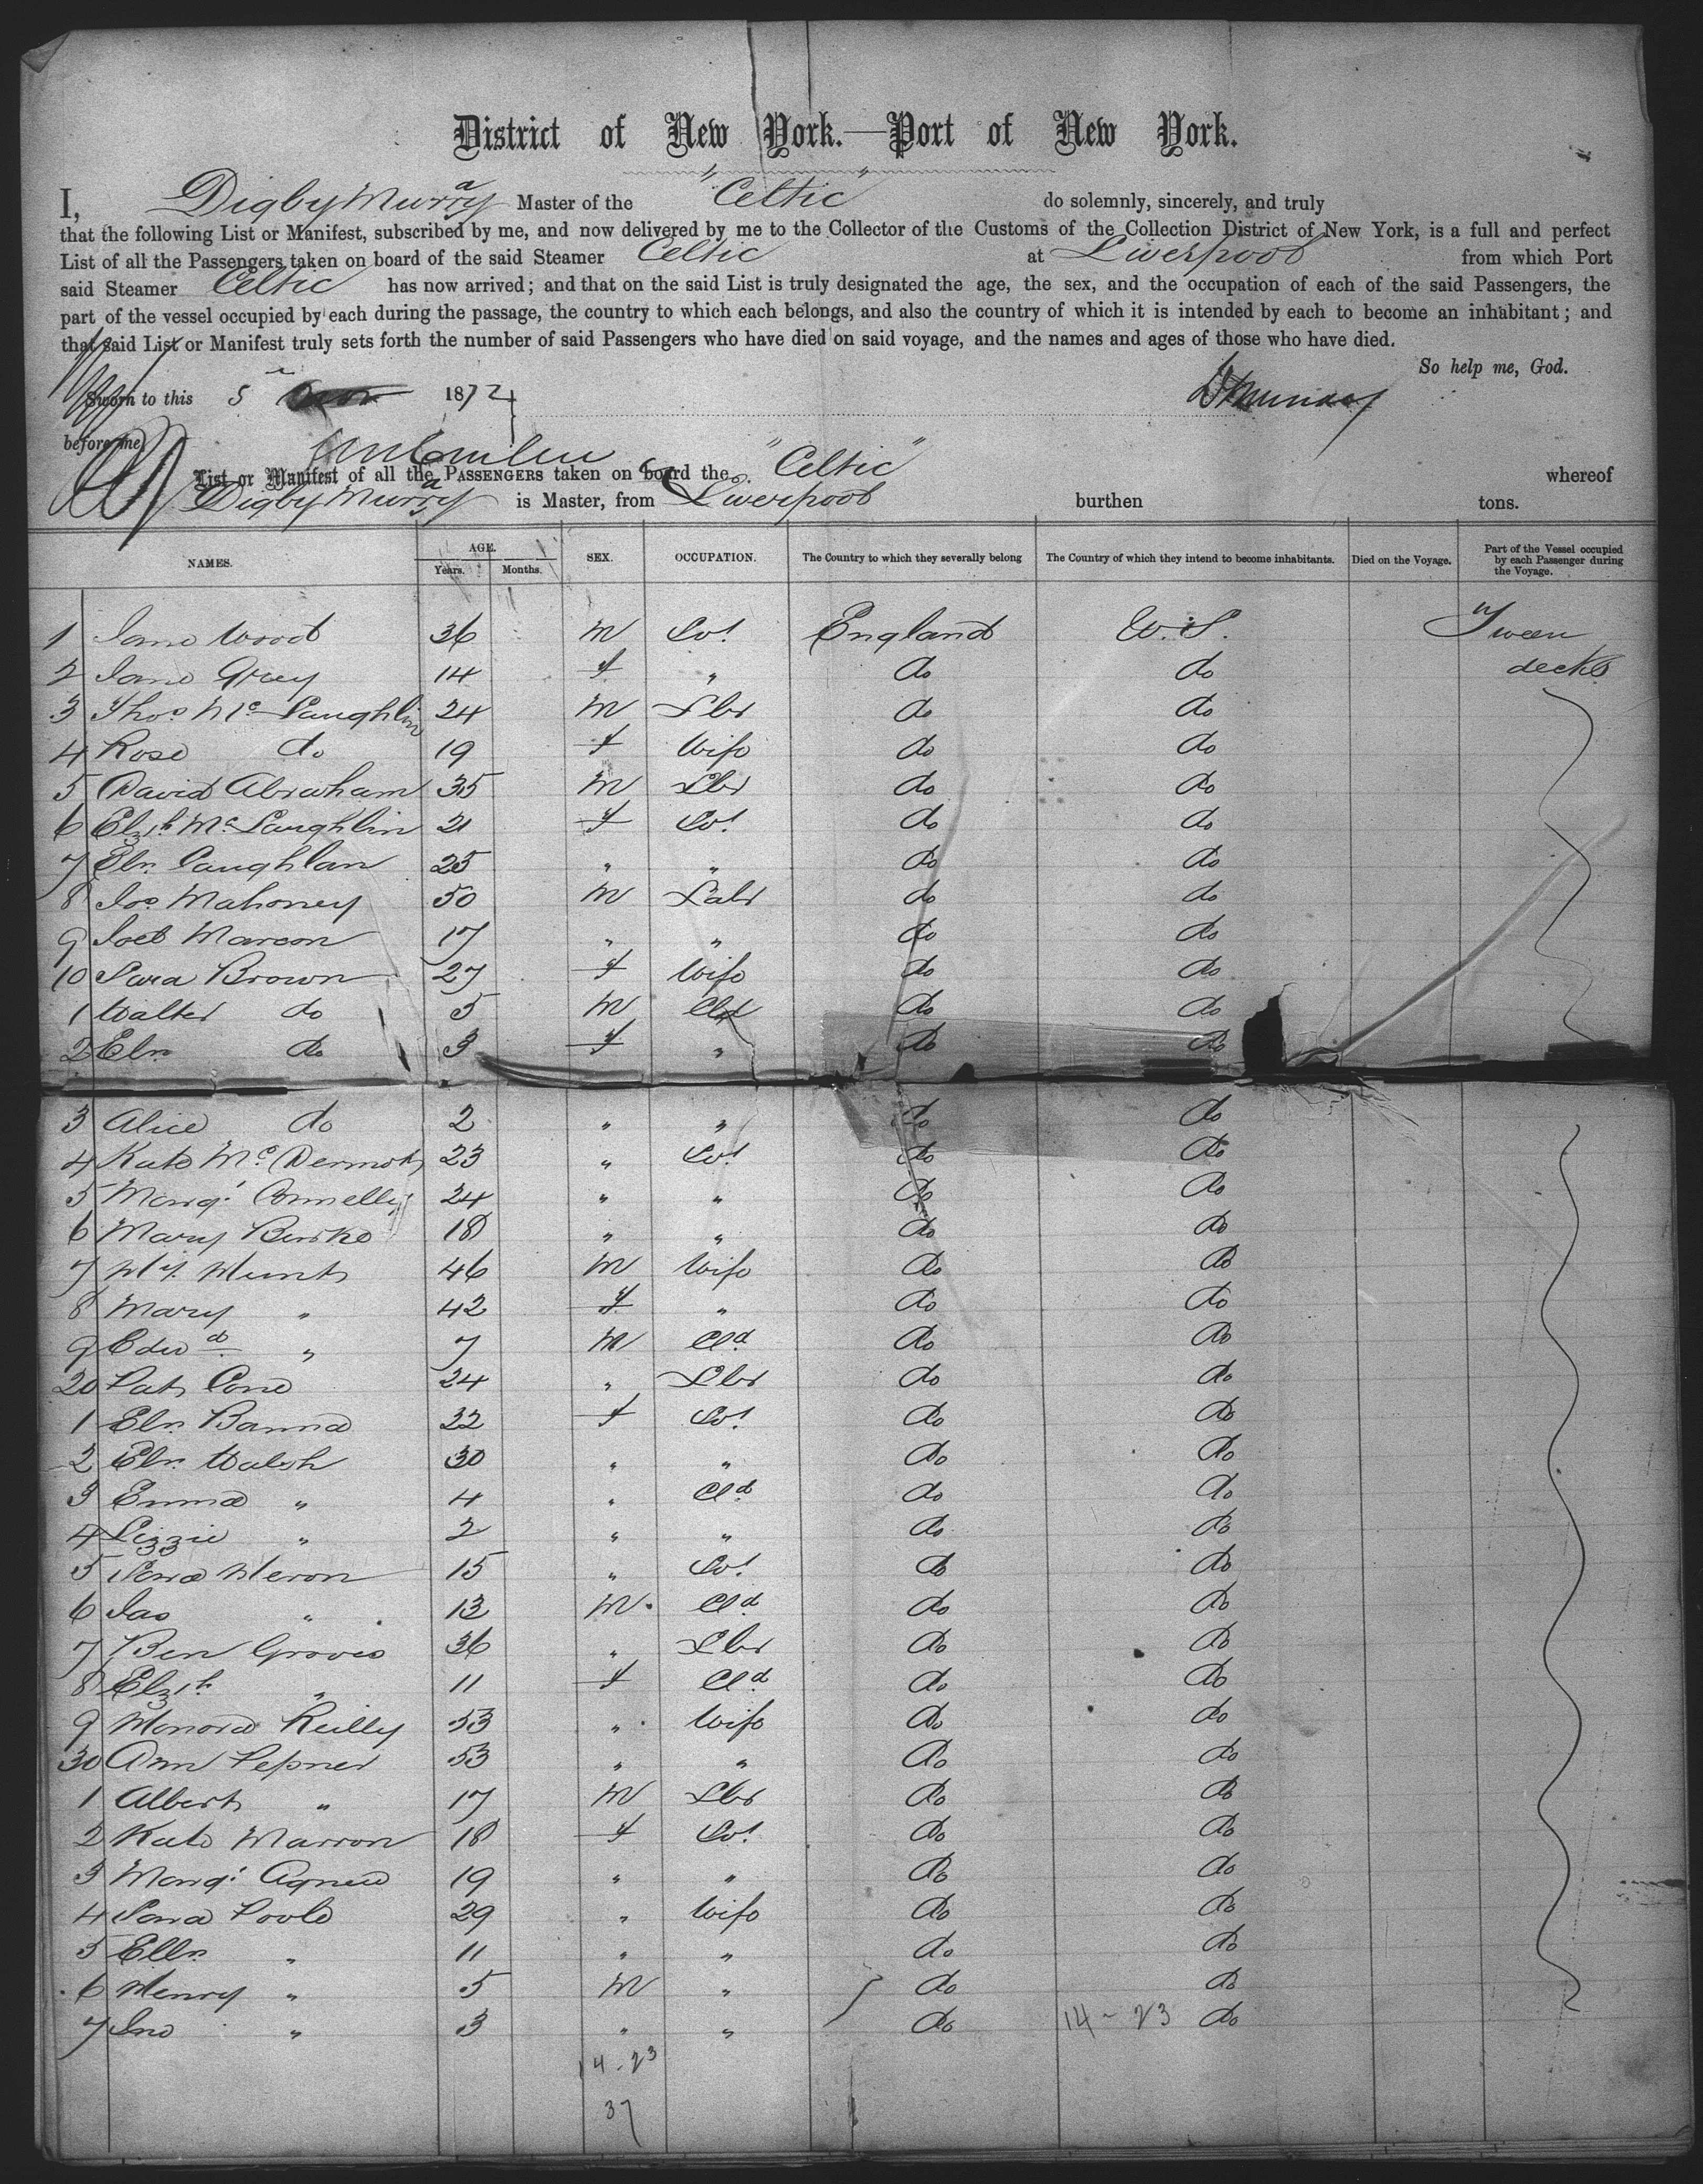 District of New York.—Port of New York.
I, Digby Murray Master of the "Celtic" do solemnly, sincerely, and truly
that the following List or Manifest, subscribed by me, and now delivered by me to the Collector of the Customs of the Collection District of New York, is a full and perfect
List of all the Passengers taken on board of the said Steamer Celtic at Liverpool from which Port
said Steamer Celtic has now arrived; and that on the said List is truly designated the age, the sex, and the occupation of each of the said Passengers, the
part of the vessel occupied by each during the passage, the country to which each belongs, and also the country of which it is intended by each to become an inhabitant; and
that said List or Manifest truly sets forth the number of said Passengers who have died on said voyage, and the names and ages of those who have died.
So help me, God.
Sworn to this 5 1872 D Murray
before me
List or Manifest of all the PASSENGERS taken on board the "Celtic" whereof
Digby Murray is Master, from Liverpool burthen tons.
NAMES. AGE. Years. Months. SEX. OCCUPATION. The Country to which they severally belong The Country of which they intend to become inhabitants. Died on the Voyage. Part of the Vessel occupied by each Passenger during the Voyage.
1 Jane Wood 36 M Svt England U.S. Tween
2 Jane Grey 14 f " do do decks
3 Thos Mc Laughlin 24 M Lbr do do
4 Rose do 19 f Wife do do
5 David Abraham 35 M Lbr do do
6 Elzth McLaughlin 21 f Svt do do
7 Eln Caughlan 25 " " do do
8 Jos Mahoney 50 M Labr do do
9 Joel Marcon 17 " " do do
10 Sara Brown 27 f Wife do do
1 Walter do 5 M Cld do do
2 Eln do 3 f " do do
3 Alice do 2 " " do do
4 Kate McDermott 23 " Svt do do
5 Margt Connelly 24 " " do do
6 Mary Burke 18 " " do do
7 Wm 46 M Wife do do
8 Mary " 42 f " do do
9 Edwd " 7 M Cld do do
20 Pat Cone 24 " Lbr do do
1 Eln 22 f Svt do do
2 Eln Walsh 30 " " do do
3 Emma " 4 " Cld do do
4 Lizzie " 2 " " do do
5 Sara Meron 15 " Svt do do
6 Jas " 13 M Cld do do
7 Ben Groves 36 " Lbr do do
8 Elzth " 11 f Cld do do
9 Honora Reilly 53 " Wife do do
30 Ann Pepner 53 " " do do
1 Albert " 17 M Lbr do do
2 Kate Marron 18 f Svt do do
3 Margt Agnew 19 " " do do
4 Sara Poole 29 " Wife do do
5 Elln " 11 " " do do
6 Henry " 5 M " do do
7 Jno " 3 " " do 14-23 do
14-23
37